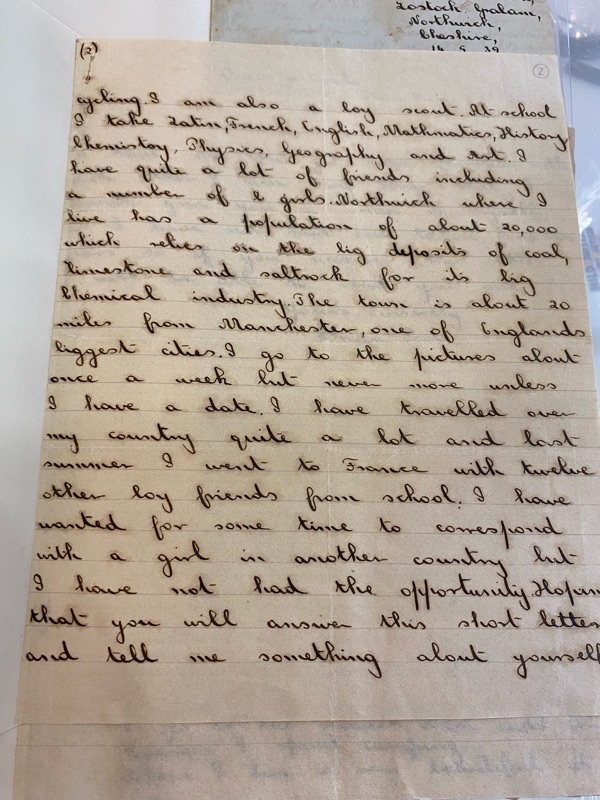 Lostock Gralam,
Northwich,
Cheshire,
14 5 39
(2)
2
cycling. I am also a boy scout. At school
I take Latin, French, English, Mathmatics, History
Chemistry, Physics, Geography and Art. I
have quite a lot of friends including
a number of girls. Northwich where I
live has a population of about 20,000
which relies on the big deposits of coal,
limestone and saltrock for its big
Chemical industry. The town is about 20
miles from Manchester, one of Englands
biggest cities. I go to the pictures about
once a week but never more unless
I have a date. I have travelled over
my country quite a lot and last
summer I went to France with twelve
other boy friends from school. I have
wanted for some time to correspond
with a girl in another country but
I have not had the opportunity. Hopin
that you will answer this short letter
and tell me something about yourself